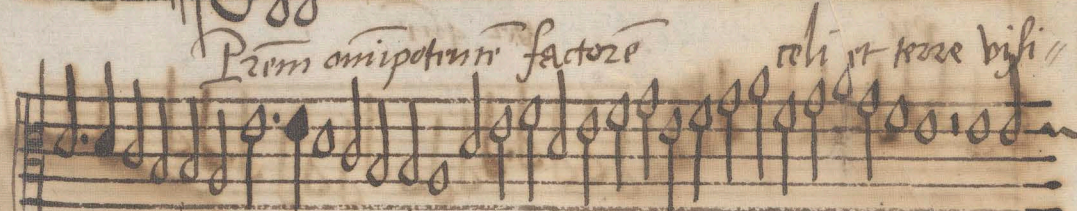 Prēm om̄ipotentē factorē celi et terre visi=